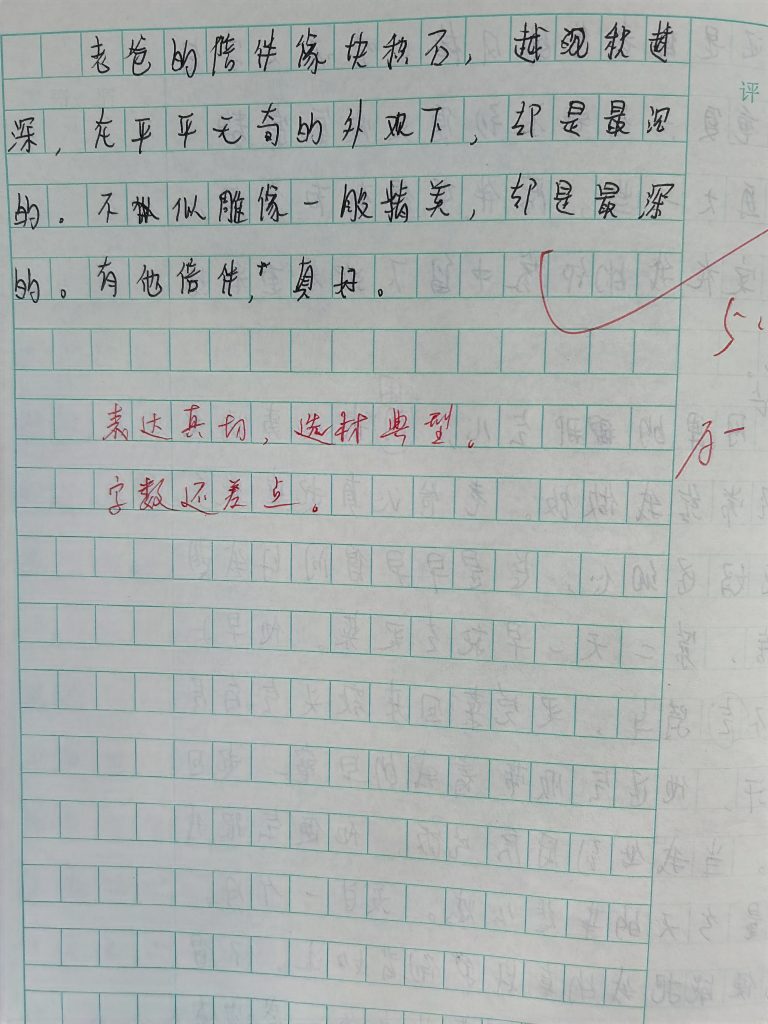 老爸的陪伴像块积石，越观我越
深，在平平无奇的外观下，却是最深
的。不似雕像一般精美，却是最深
的。有他陪伴，真好。
评
表达真切，选材典型。
字数还差点。